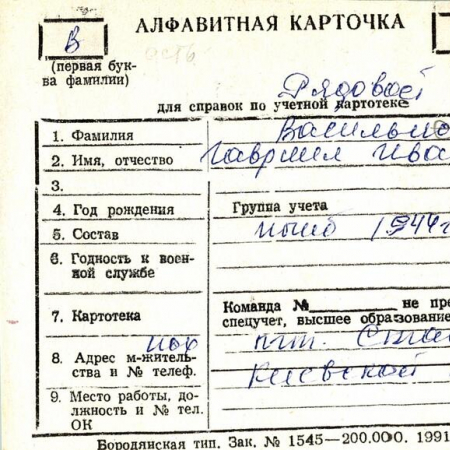 АЛФАВИТНАЯ КАРТОЧКА
В
есть
(первая бук-
ва фамилии)
Рядовой
для справок по учетной картотеке
1. Фамилия Василь
2. Имя, отчество Гавриил Ива
3.
4. Год рождения Группа учета
5. Состав погиб 1944 г
6. Годность к воен-
ной службе
7. Картотека Команда № не пре
спецучет, высшее образование
8. Адрес м-житель-
ства и № телеф. пгт.
Киевской
9. Место работы, до-
лжность и № тел.
ОК
Бородянская тип. Зак. № 1545—200.000. 1991